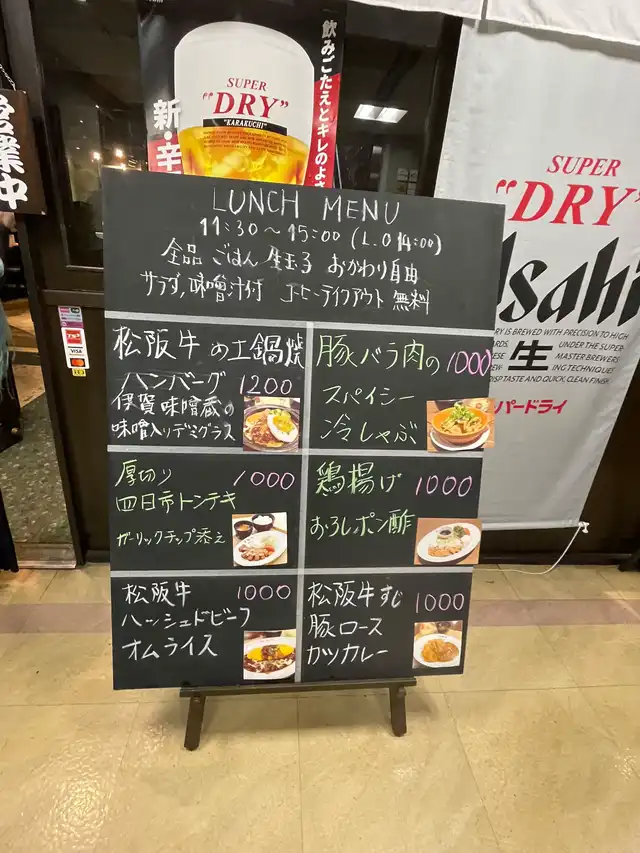 飲みごたえとキレのよさ
新・辛
SUPER
"DRY"
"KARAKUCHI"
営業中
LUNCH MENU
11:30～15:00 (L.O 14:00)
全品 ごはん 生玉子 おかわり自由
サラダ,味噌汁付 コーヒーテイクアウト 無料
松阪牛の土鍋焼
ハンバーグ 1200
伊賀味噌蔵の
味噌入りデミグラス
豚バラ肉の 1000
スパイシー
冷しゃぶ
厚切り 1000
四日市トンテキ
ガーリックチップ添え
鶏揚げ 1000
おろしポン酢
松阪牛 1000
ハッシュドビーフ
オムライス
松阪牛すじ 1000
豚ロース
カツカレー
SUPER
"DRY"
Asahi
生
RY IS BREWED WITH PRECISION TO HIGH
UNDER THE SUPER
MASTER BREWERS
ING TECHNIQUES
CRISP TASTE AND QUICK, CLEAN FINISH.
パードライ
VISA